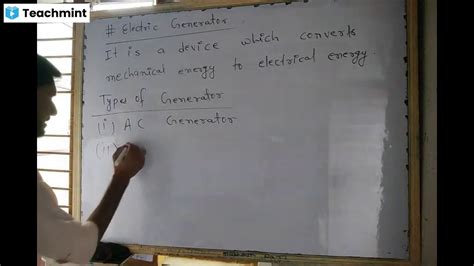 Teachmint
# Electric Generator
It is a device which converts
mechanical energy to electrical energy.
Types of Generator
(i) A C Generator
(ii)